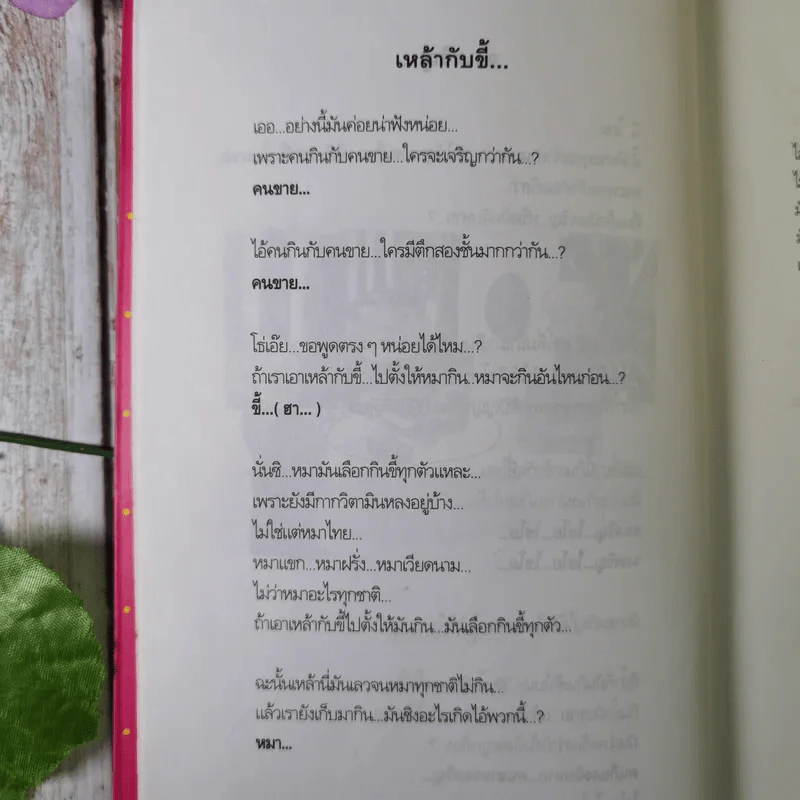 เหล้ากับขี้...
เออ...อย่างนี้มันค่อยน่าฟังหน่อย...
เพราะคนกินกับคนขาย...ใครจะเจริญกว่ากัน...?
คนขาย...
ไอ้คนกินกับคนขาย...ใครมีตึกสองชั้นมากกว่ากัน...?
คนขาย...
โธ่เอ๊ย...ขอพูดตรง ๆ หน่อยได้ไหม...?
ถ้าเราเอาเหล้ากับขี้...ไปตั้งให้หมากิน..หมาจะกินอันไหนก่อน...?
ขี้...( ฮา... )
นั่นซิ...หมามันเลือกกินขี้ทุกตัวแหละ...
เพราะยังมีกากวิตามินหลงอยู่บ้าง...
ไม่ใช่แต่หมาไทย...
หมาแขก...หมาฝรั่ง...หมาเวียดนาม...
ไม่ว่าหมาอะไรทุกชาติ...
ถ้าเอาเหล้ากับขี้ไปตั้งให้มันกิน...มันเลือกกินขี้ทุกตัว...
ฉะนั้นเหล้านี่มันเลวจนหมาทุกชาติไม่กิน...
แล้วเรายังเก็บมากิน...มันชิงอะไรเกิดไอ้พวกนี้...?
หมา...